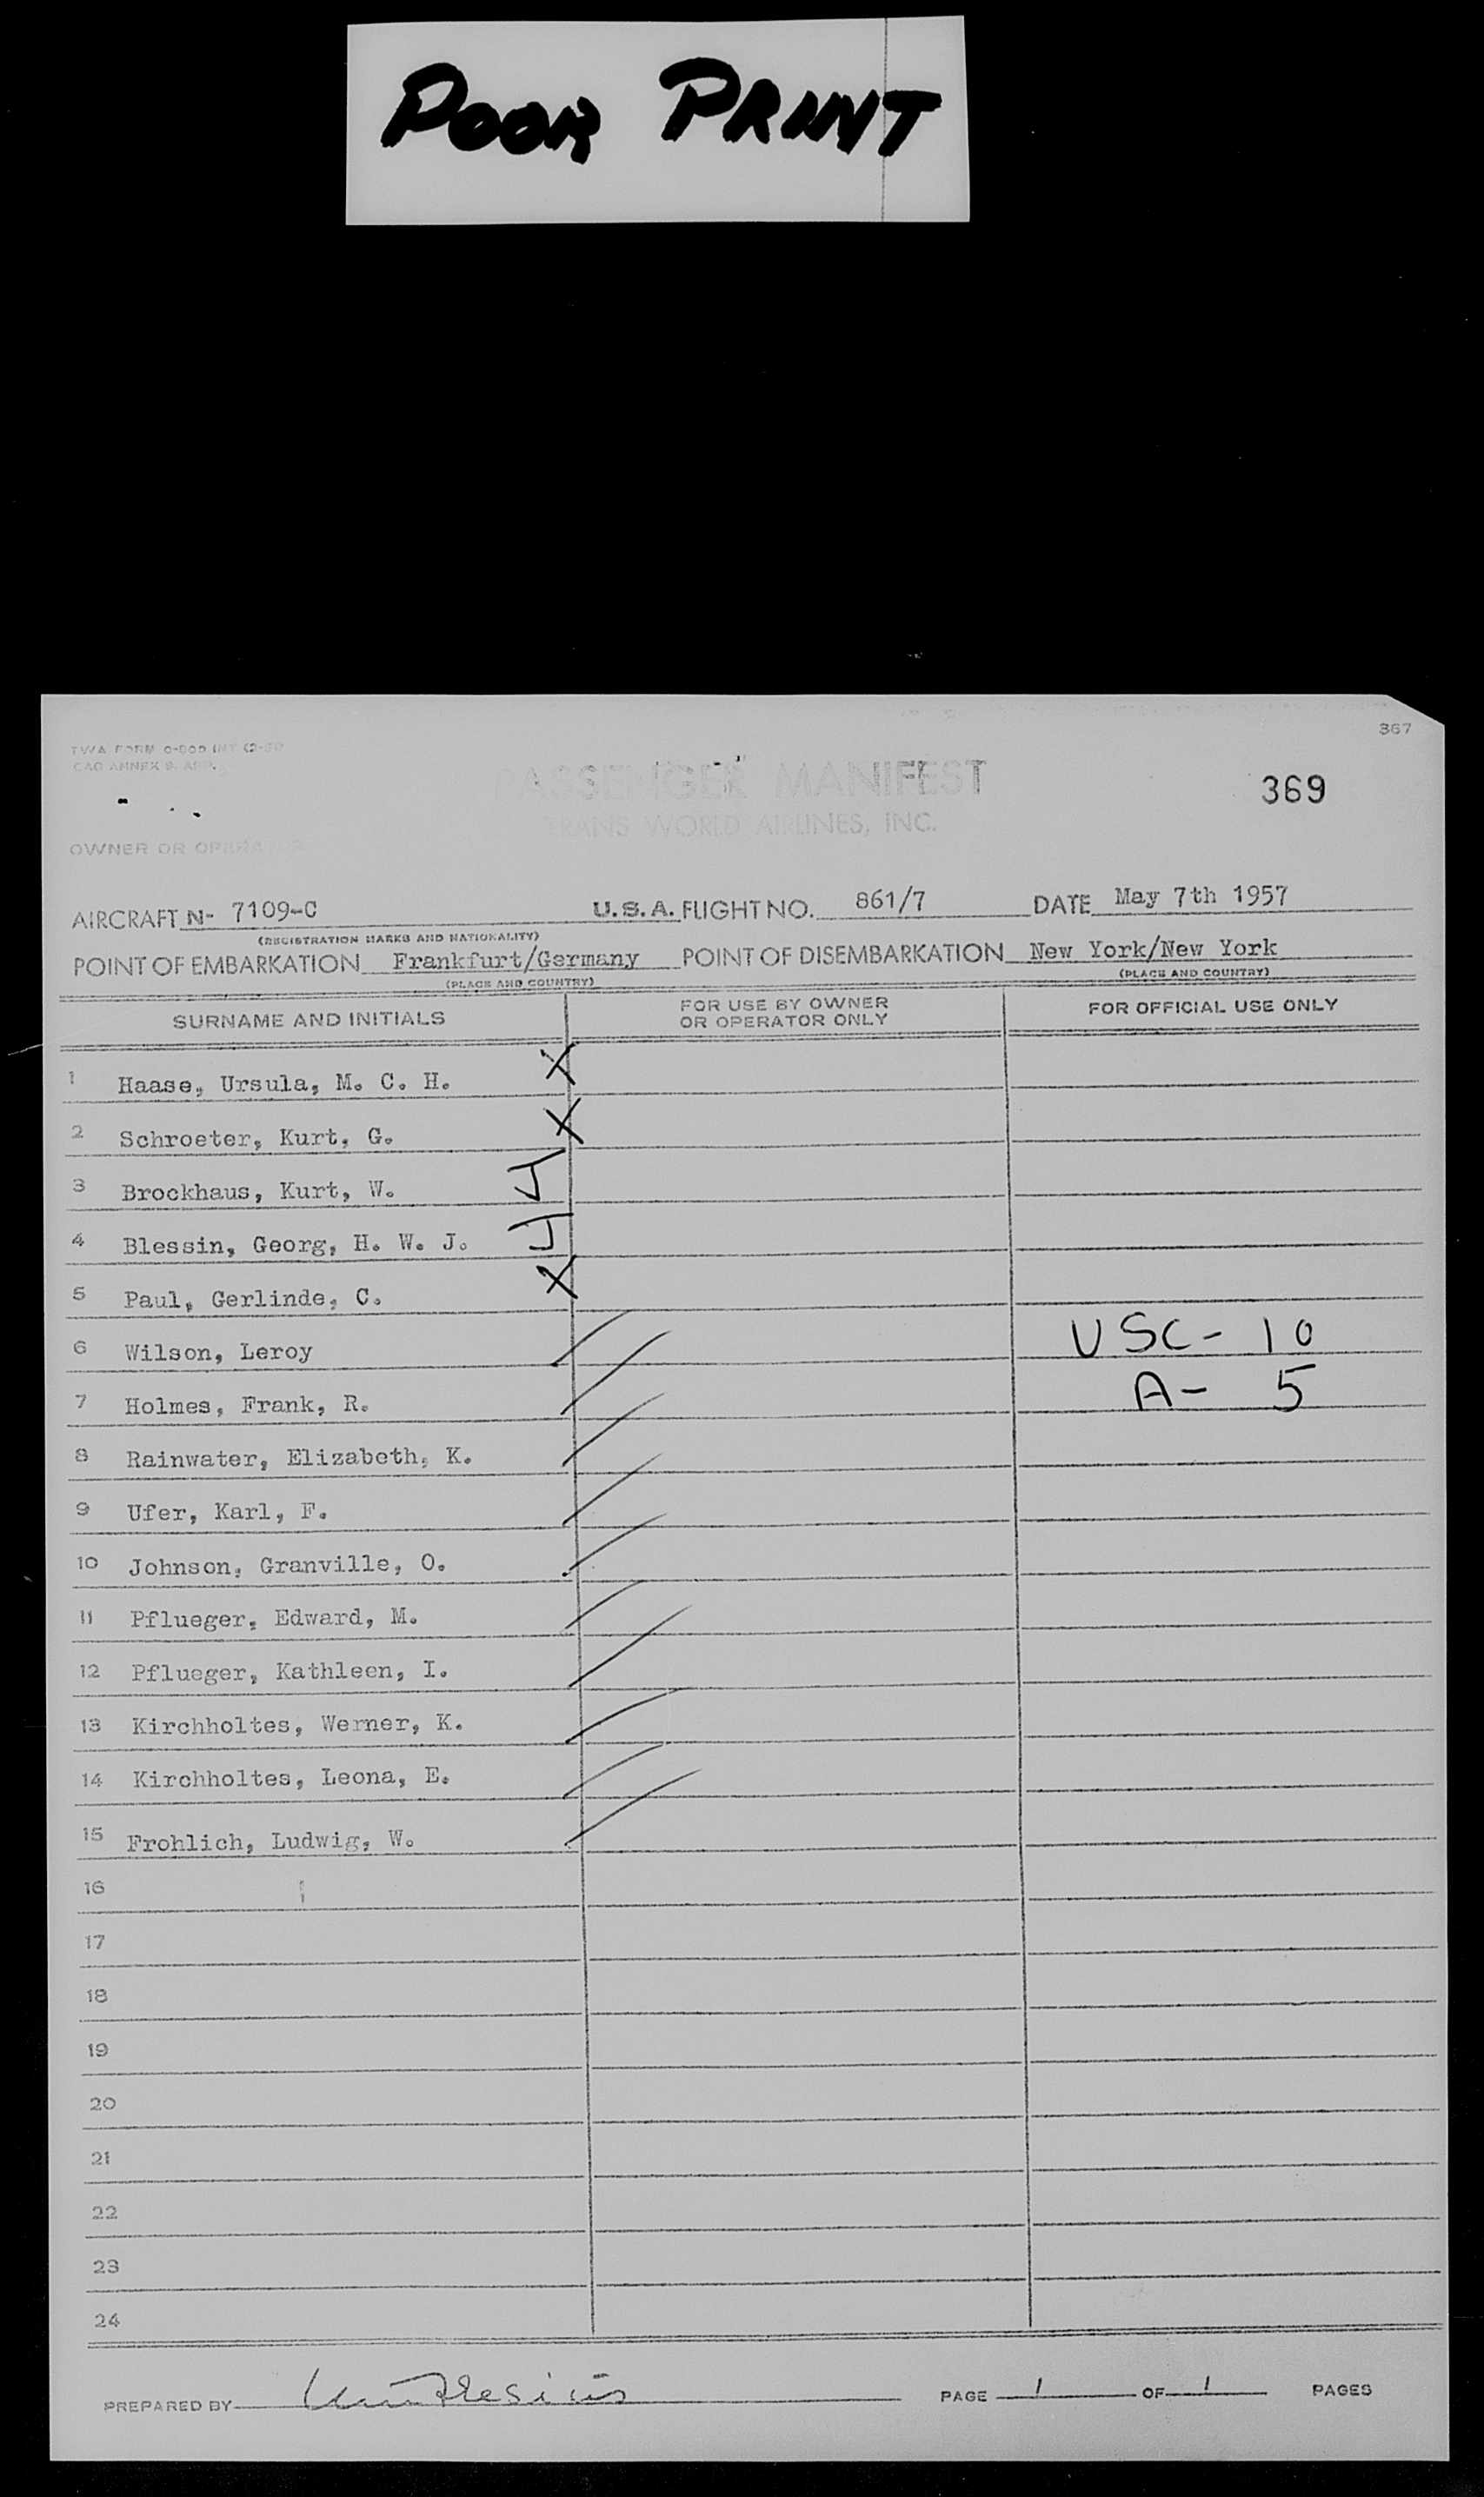 POOR PRINT
367
TWA FORM
PASSENGER MANIFEST
369
TRANS WORLD AIRLINES, INC.
OWNER OR OPERATOR
AIRCRAFT N- 7109-C U.S.A. FLIGHT NO. 861/7 DATE May 7th 1957
(REGISTRATION MARKS AND NATIONALITY)
POINT OF EMBARKATION Frankfurt/Germany POINT OF DISEMBARKATION New York/New York
(PLACE AND COUNTRY) (PLACE AND COUNTRY)
SURNAME AND INITIALS FOR USE BY OWNER OR OPERATOR ONLY FOR OFFICIAL USE ONLY
1 Haase, Ursula, M. C. H. X
2 Schroeter, Kurt, G. X
3 Brockhaus, Kurt, W.
4 Blessin, Georg, H. W. J.
5 Paul, Gerlinde, C. X
6 Wilson, Leroy USC - 10
7 Holmes, Frank, R. A - 5
8 Rainwater, Elizabeth, K.
9 Ufer, Karl, F.
10 Johnson, Granville, O.
11 Pflueger, Edward, M.
12 Pflueger, Kathleen, I.
13 Kirchholtes, Werner, K.
14 Kirchholtes, Leona, E.
15 Frohlich, Ludwig, W.
16
17
18
19
20
21
22
23
24
PREPARED BY PAGE 1 OF 1 PAGES